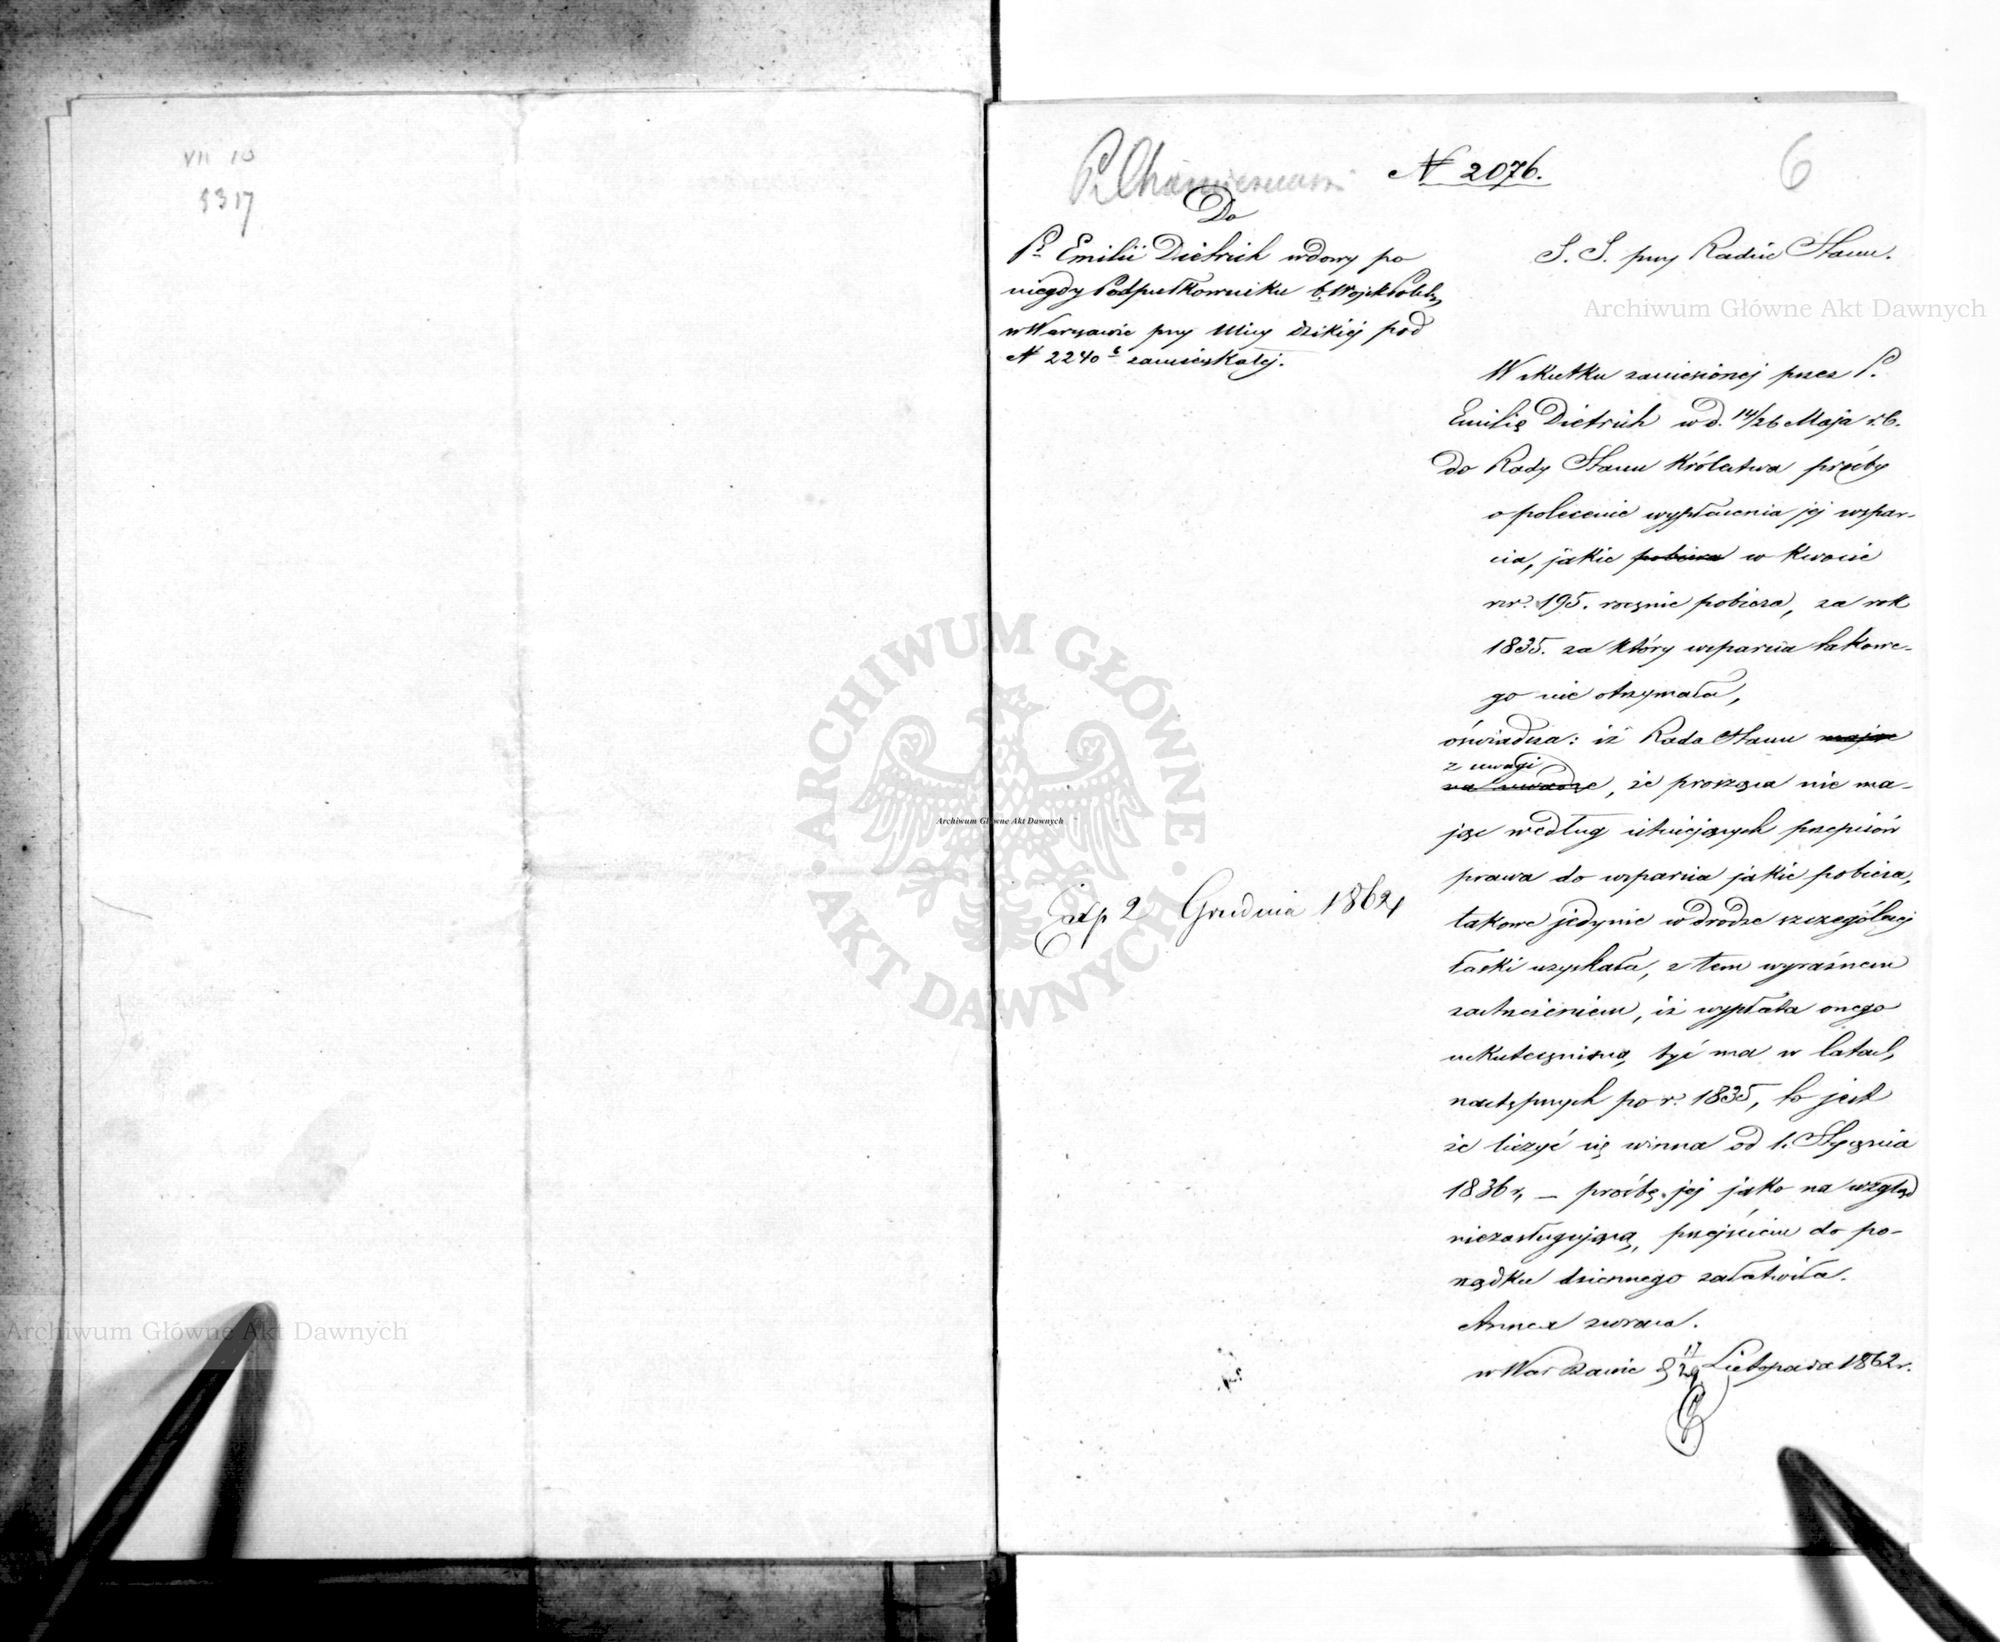 VII 10
5317
N 2076.
6
Do
P. Emilii Dietrich wdowy po
niegdy Podpułkowniku b. Wojsk Polskich
w Warszawie przy Ulicy Dzikiej pod
N 2240 c zamieszkałej.
Exp 2 Grudnia 1862
S. S. przy Radzie Stanu.
W skutku zaniesionej przez P.
Emilię Dietrich w d. 14/26 Maja r. b.
do Rady Stanu Królestwa prośby
o polecenie wypłacenia jej wspar-
cia, jakie pobiera w kwocie
rsr. 195. rocznie pobiera, za rok
1835. za który wsparcia takowe-
go nie otrzymała,
oświadcza: iż Rada Stanu mając
z uwagi
na uwadze, że prosząca nie ma-
jąc według istniejących przepisów
prawa do wsparcia jakie pobiera,
takowe jedynie w drodze szczególnej
łaski uzyskała, z tem wyraźnem
zastrzeżeniem, iż wypłata onego
uskutecznioną być ma w latach
następnych po r. 1835, to jest
że liczyć się winna od 1. Stycznia
1836 r, — prośbę jej jako na wzgląd
niezasługującą, przejściem do po-
rządku dziennego załatwiła.
Annexa zwraca.
w Warszawie d 17/29 Listopada 1862 r.
Archiwum Główne Akt Dawnych
Archiwum Główne Akt Dawnych
Archiwum Główne Akt Dawnych
ARCHIWUM GŁÓWNE · AKT DAWNYCH ·